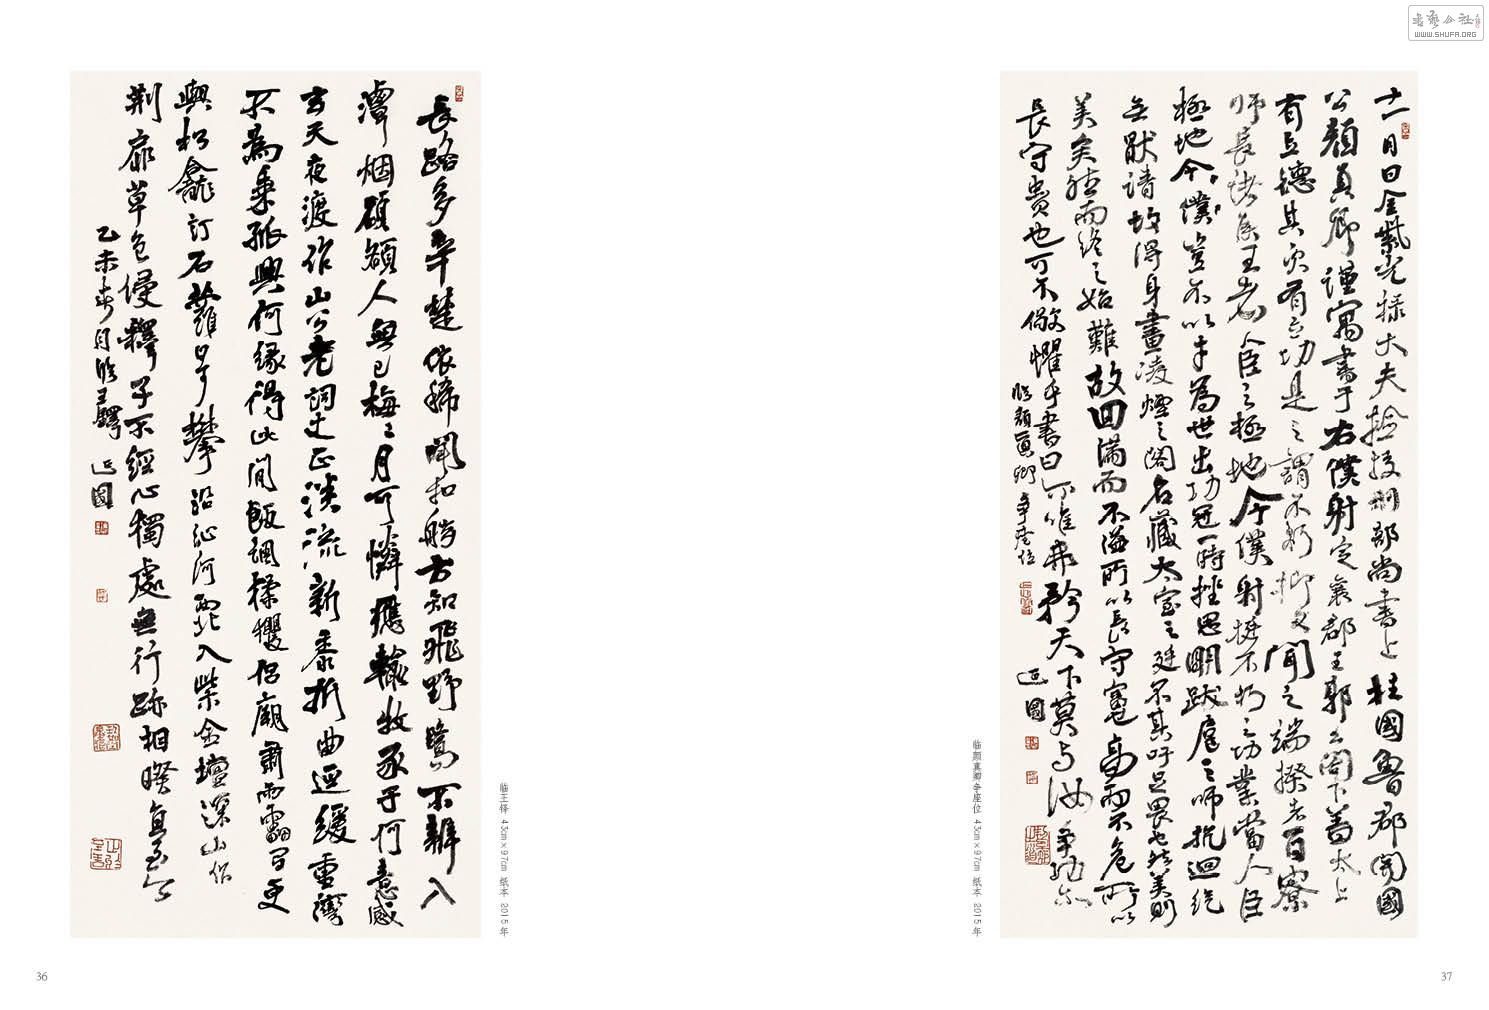 長路多辛楚依稀聞扣舷方知飛野鷺不辨入
濤烟碩額人無已梅二月可憐應轍牧豕于何意感
玄天夜渡作山公老詞丈正淡流新黍折曲逕緩重灣
不為乘孤興何緣得此閒飯調猱玃侶廟肅雨靁司更
與松龕訂石蘿攀沿河入柴金壇深山作
荆扉草色侵釋子不經心獨處無行跡相暌真至今
乙未春月臨王鐸 國
临王铎 43cm×97cm 纸本 2015年
36
十一月日金紫光禄大夫檢校刑部尚書上柱國魯郡開國
公顏真卿謹寓書于右僕射定襄郡王郭公閣下蓋太上
有立德其次有立功是之謂不朽抑又聞之端揆者百寮
師長諸侯王者人臣之極地今僕射挺不朽之功業當人臣
極地今僕豈不以才為世出功冠一時挫思明跋扈之師抗迴紇
無厭請故得身畫凌煙之閣名藏太室之廷不其吁足畏也然美則
美矣然而終之始難故曰滿而不溢所以長守富高而不危所以
長守貴也可不儆懼乎書曰不唯弗矜天下莫与汝争
臨顏真卿争座位 國
临颜真卿争座位 43cm×97cm 纸本 2015年
37
书艺公社
WWW.SHUFA.ORG